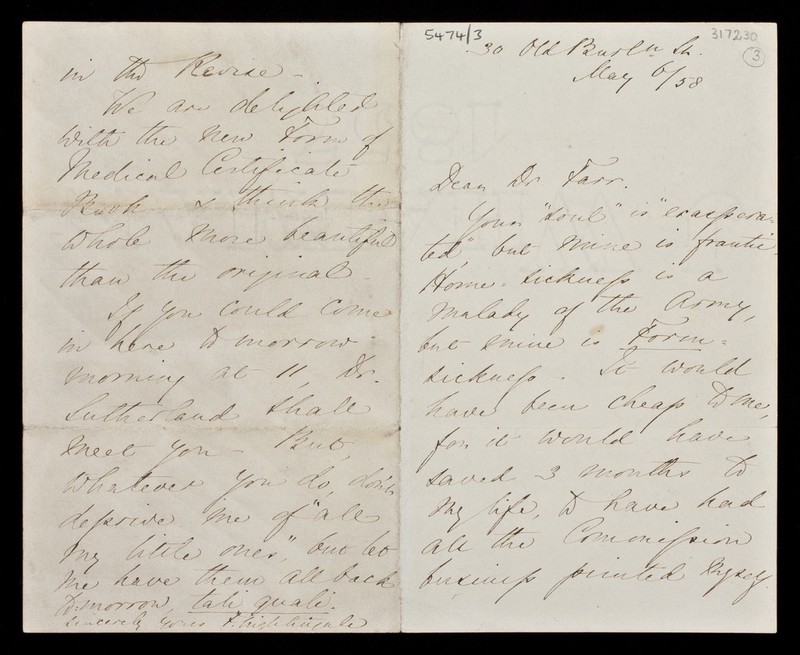 5474/3
317230
3
30 Old Burln St.
May 6/58
Dear Dr Farr.
Your "soul" is "exaspera-
ted", but mine is frantic.
Home-sickness is a
malady of the Army,
but mine is Form-
sickness - It would
have been cheap to me,
for it would have
saved 3 months to
my life, to have had
all the Commission
business printed myself.
in the Revise -
We are delighted
with the new Form of
Medical Certificate
Book & think the
whole more beautiful
than the original -
If you could come
in here to morrow
morning at 11, Dr.
Sutherland shall
meet you - But,
whatever you do, don't
deprive me of "all
my little ones", but let
me have them all back
to-morrow, tali quali.
sincerely yours F. Nightingale